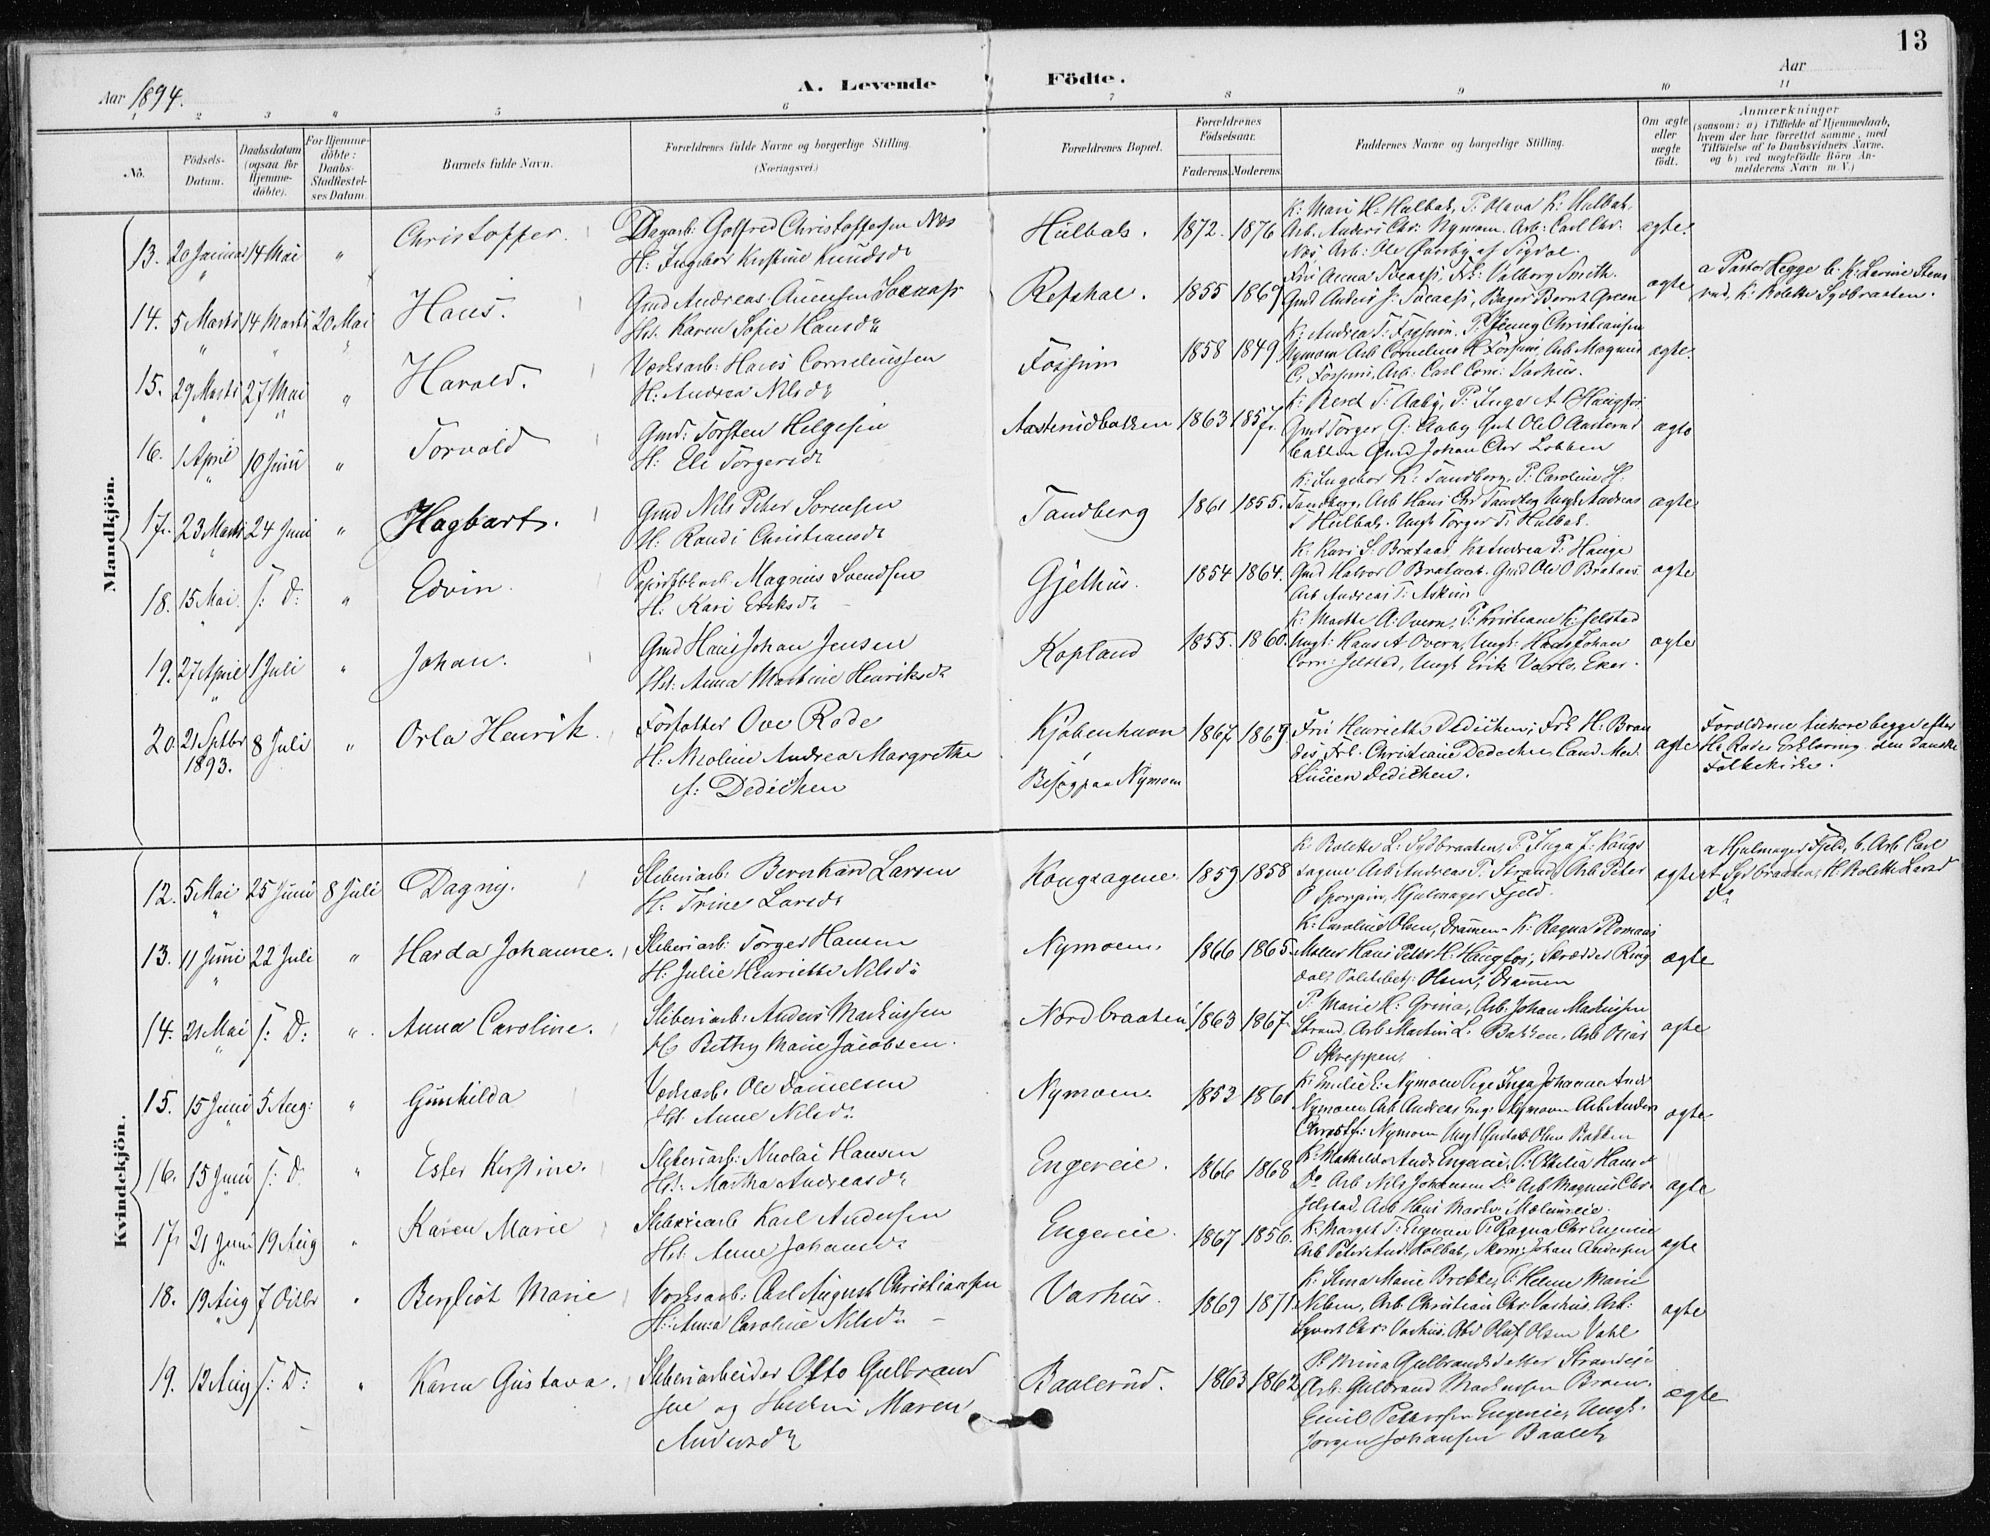 13
Aar 1894.
A. Levende Födte.
Aar
1 2 3 4 5 6 7 8 9 10 11
No.
Födsels-Datum.
Daabsdatum (ogsaa for Hjemme-döbte).
For Hjemme-döbte: Daabs-Stadfæstel-ses Datum
Barnets fulde Navn.
Forældrenes fulde Navne og borgerlige Stilling. (Næringsvei.)
Forældrenes Bopæl.
Forældrenes Födselsaar.
Faderens. Moderens.
Faddernes Navne og borgerlige Stilling.
Om ægte eller uægte födt.
Anmærkninger
(saasom: a) i Tilfælde af Hjemmedaab, hvem der har forrettet samme, med Tilföielse af to Daabsvidners Navne, og b) ved uægtefödte Börn An-melderens Navn m. V.)
Mandkjön.
13. 20 Januar 14 Mai " Christoffer.
Dagarb: Golfred Christoffersen Næs
H: Ingebor Kristine Knudsdr
Hulbak. 1872. 1876
K: Mari H: Hulbak, P: Olava K: Hulbak,
Arb. Anders Chr: Nymoen. Arb: Carl Chr.
ægte.
14. 5 Marts 14 Marts 20 Mai Hans.
Gmd Andreas
Hst. Karen Sofie Hansdr
1855 1869
ægte
a Pastor Hegge b. K:
K. Rolette Sydbraaten.
15. 29 Marts 27 Mai " Harald.
Værksarb: Hans Corneliussen
H: Andrea Nilsdr
Fossum 1858 1849
K: Andrea T: Fossum. P: Jenny Christiansen
Nymoen Arb Cornelius H Fossum, Arb. Magnus
C. Fossum, Arb. Carl Corn: Varhus.
ægte.
16. 1 April 10 Juni " Torvald
Gmd: Torsten Helgesen
H: Eli Torgersdr
Aasterudbakken 1863 1857.
Gmd Torger G: Aaby Gut Ole O Aasterud
bakken Gmd Johan Chr Lobben
ægte
17. 23 Marts 24 Juni " Hagbart.
Gmd Nils Peter Sørensen
H: Randi Christiansdr
Tandberg 1861 1855.
K: Ingebor K: Tandberg, P: Caroline H:
Tandberg, Arb Hans Chr Tandberg Ungk Andreas
T Hulbak. Ungk Torger T: Hulbak.
ægte
18. 15 Mai S: D: " Edvin.
Magnus Svendsen
H: Kari Eriksdr
Gjelhus. 1854 1864.
K: Kari S. Brataas, K: Andrea P: Hauge
Gmd Halvor O Brataas. Gmd Ole O Brataas
Arb Andreas T: Askim
ægte
19. 27 April 1 Juli " Johan.
Gmd Hans Johan Jensen
Hst: Anna Martine Henriksdr
Kopland 1855. 1860.
K: Marthe A: Overn, P: Kristiane K: Jelstad
Ungk: Hans A Overn, Ungk: Hans Johan
Corn: Jelstad, Ungk Erik Eker.
ægte
20. 21 Sptbr 1893. 8 Juli " Orla Henrik.
Forfatter Ove Rode
H: Nicoline Andrea Margrethe
f: Dedichen
Kjøbenhavn
Besøg paa Nymoen
1867 1869
Fru Henriette Dedichen; Frk H: Bran
des, Frk: Christiane Dedichen, Cand. Med.
Lucien Dedichen.
ægte
Forældrene tilhøre begge efter
Hr Rodes Erklæring den danske
Folkekirke.
Kvindekjön.
12. 5 Mai 25 Juni 8 Juli Dagny.
Sliberiarb. Bernhard Larsen
H: Trine Larsdr
Kongsagene 1859 1858
K: Rolette L: Sydbraaten, P: Inga J: Kongs
sagene Arb Andreas P. Strand, Arb Peter
Hjulmager Fjeld.
ægte
a Hjulmager Fjeld, b. Arb Carl
Sydbraaten, H. Rolette Larsd
13. 11 Juni 22 Juli " Harda Johanne.
Sliberiarb: Torger Hansen
H: Julie Henriette Nilsdr
Nymoen. 1866 1865
K: Caroline Olsen, Drammen. K: Ragna Romans
Møller Hans Peter H: Haugfos, Skrædder Ring
dal, Politibetj: Olsen, Drammen
ægte
14. 21 Mai S: D: " Anna Caroline.
Sliberiarb: Anders Markussen
H: Bethy Marie Jacobsen.
Nordbraaten 1863 1867
P: Marie K: Grina, Arb. Johan Markussen
Strand, Arb Martin L. Bakken, Arb Osias
O Skreppen.
ægte
15. 15 Juni 5 Aug: " Gunhilda
Værksarb: Ole Danielsen
Hst: Anne Nilsdr
Nymoen. 1853 1861
K: Emilie E: Nymoen Pige Inga Johanne Andr
Nymoen, Arb Andreas Eng: Nymoen Arb Anders
Christf: Nymoen Ungk Gustav Olsen Bakken
ægte.
16. 15 Juni S: D. " Ester Kristine.
Sliberiarb: Nicolai Hansen
Hst: Martha Andreasdr
Engereie. 1866 1868
K: Mathilde Andr: Engereie, P: Othilie Hansd
Do Arb Nils Johansen Do Arb Magnus Chr.
Jelstad, Arb Hans
ægte
17. 21 Juni 19 Aug " Karen Marie
Sliberiarb Karl Andersen
Hst: Anne Johansdr
Engereie. 1867 1856.
K: Marget T: Engereie P: Ragna Chr. Engereie
Arb Peter And: Holbak, Skom: Johan Andersen
ægte
18. 19 Aug 7 Octbr " Bergliot Marie
Værksarb: Carl August Christiansen
H: Anna Caroline Nilsdr
Varhus. 1869 1871
K: Stina Marie Brekke, P: Helene Marie
Nilsen, Arb Christian Chr: Varhus, Arb:
Syvert Chr: Varhus, Arb Oluf Olsen Vahl
ægte
19. 12 Aug S: D: " Karen Gustava.
Sliberiarbeider Otto Gulbrand
sen og Hustru Maren
Andersdr
Baalerud. 1863 1862
P: Mina Gulbrandsdatter Strandeje
Arb: Gulbrand Markussen
Emil Petersen Engereie, Ungk.
Jørgen Johansen
ægte